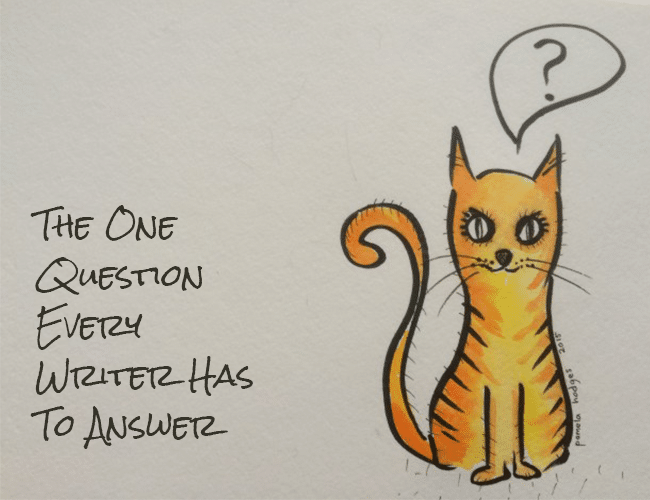 ?
The One
Question
Every
Writer Has
To Answer
pamela hodges 2015